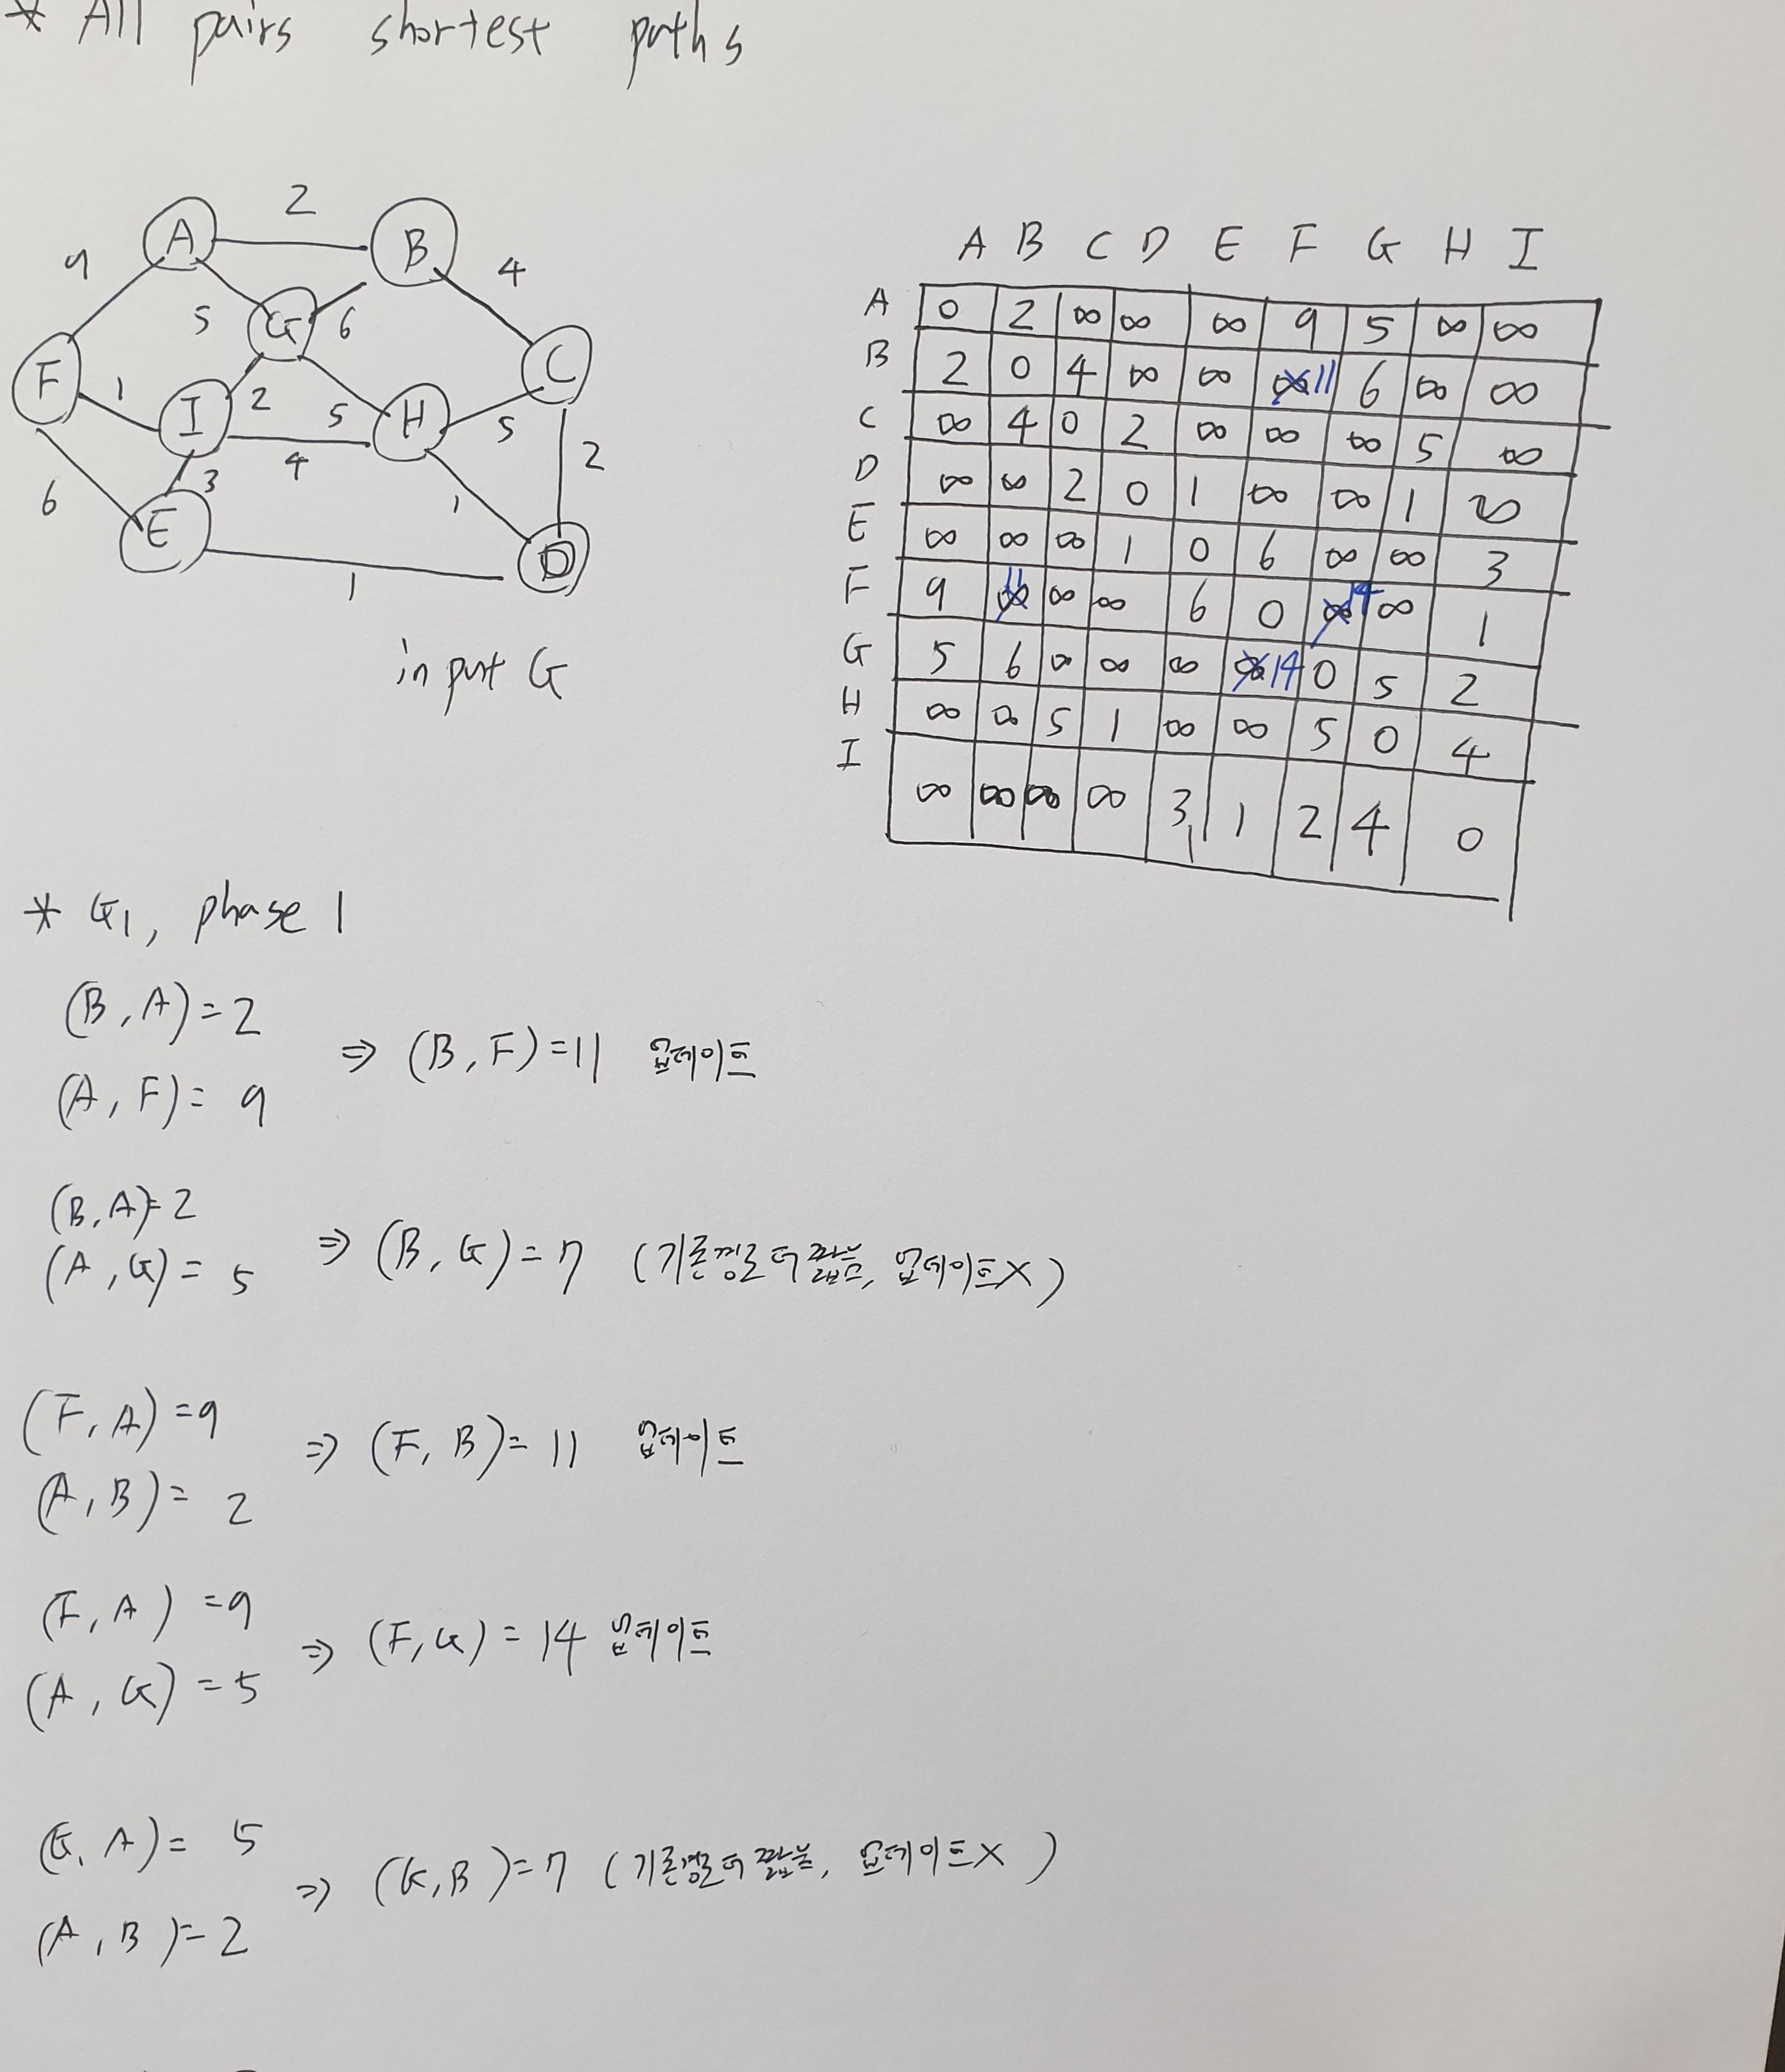 * All pairs shortest paths
A 2 B
9 4
5 G 6
F 1 I 2 5 H 5 C
4 2
6 3 1
E D
1
input G
A B C D E F G H I
A 0 2 ∞ ∞ ∞ 9 5 ∞ ∞
B 2 0 4 ∞ ∞ ∞ 11 6 ∞ ∞
C ∞ 4 0 2 ∞ ∞ ∞ 5 ∞
D ∞ ∞ 2 0 1 ∞ ∞ 1 ∞
E ∞ ∞ ∞ 1 0 6 ∞ ∞ 3
F 9 ∞ 11 ∞ ∞ 6 0 ∞ 14 ∞ 1
G 5 6 ∞ ∞ ∞ ∞ 14 0 5 2
H ∞ ∞ 5 1 ∞ ∞ 5 0 4
I ∞ ∞ ∞ ∞ 3 1 2 4 0
* G1, phase 1
(B, A) = 2
⇒ (B, F) = 11 업데이트
(A, F) = 9
(B, A) = 2
⇒ (B, G) = 7 (기존경로 더 짧음, 업데이트X)
(A, G) = 5
(F, A) = 9
⇒ (F, B) = 11 업데이트
(A, B) = 2
(F, A) = 9
⇒ (F, G) = 14 업데이트
(A, G) = 5
(G, A) = 5
⇒ (G, B) = 7 (기존경로 더 짧음, 업데이트X)
(A, B) = 2